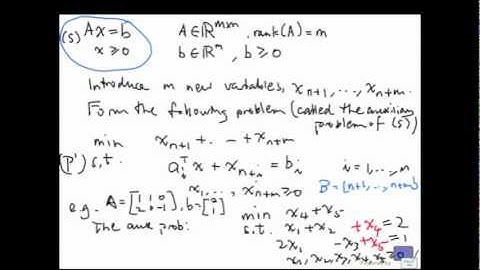 (S) Ax = b   A ∈ ℝ^{m×n}, rank(A) = m
x ≥ 0   b ∈ ℝ^m, b ≥ 0
Introduce m new variables, x_{n+1}, ..., x_{n+m}.
Form the following problem (called the auxiliary
problem of (S))
min x_{n+1} + ... + x_{n+m}
(P') s.t. a_i^T x + x_{n+i} = b_i   i = 1, ..., m
x_1, ..., x_{n+m} ≥ 0   B = {n+1, ..., n+m}
e.g. A = [1 1 0; 2 0 -1], b = [2; 1]
The aux prob:   min x_4 + x_5
s.t. x_1 + x_2 + x_4 = 2
2x_1 - x_3 + x_5 = 1
x_1, x_2, x_3, x_4, x_5 ≥ 0